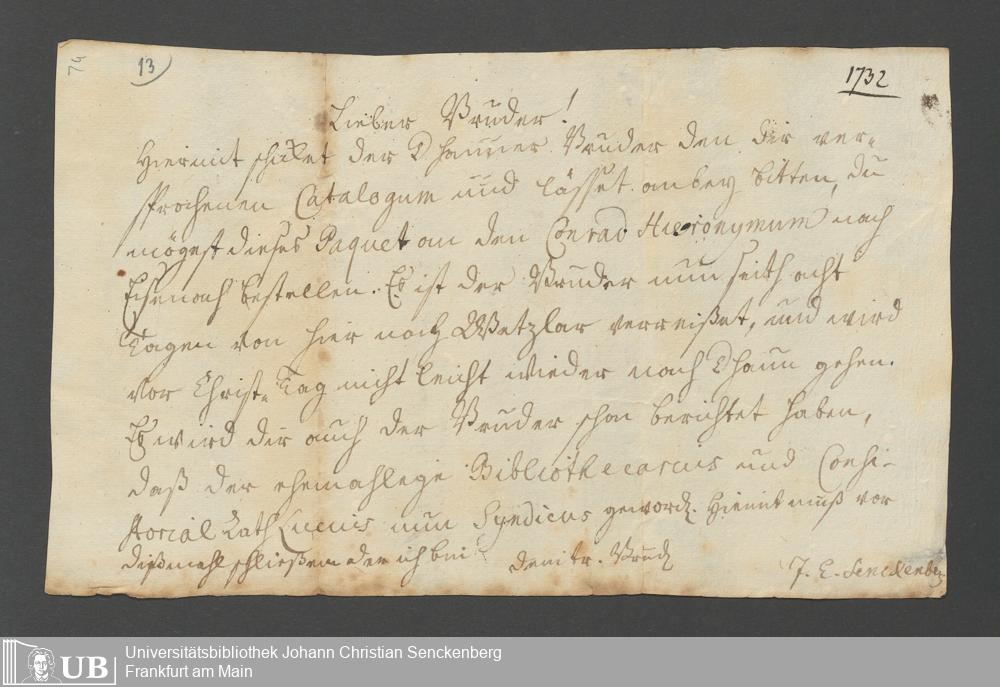 74
13)
1732
Lieber Bruder!
Hiermit schicket der Dhauner Bruder den dir ver-
sprochenen Catalogum und lässet anbey bitten, du
mögest dieses Paquet an den Conrad Hieronymum nach
Eisenach bestellen. Es ist der Bruder nun seith acht
Tagen von hier nach Wetzlar verreißet, und wird
vor Christ-Tag nicht leicht wieder nach Dhaun gehen.
Es wird dir auch der Bruder schon berichtet haben,
daß der ehemahlige Bibliothecarius und Consi-
storial Rath nun Syndicus geword. Hiemit muß vor
dißmahl schließen der ich bin
Dein tr. Brud
J. E. Senckenberg
UB Universitätsbibliothek Johann Christian Senckenberg
Frankfurt am Main